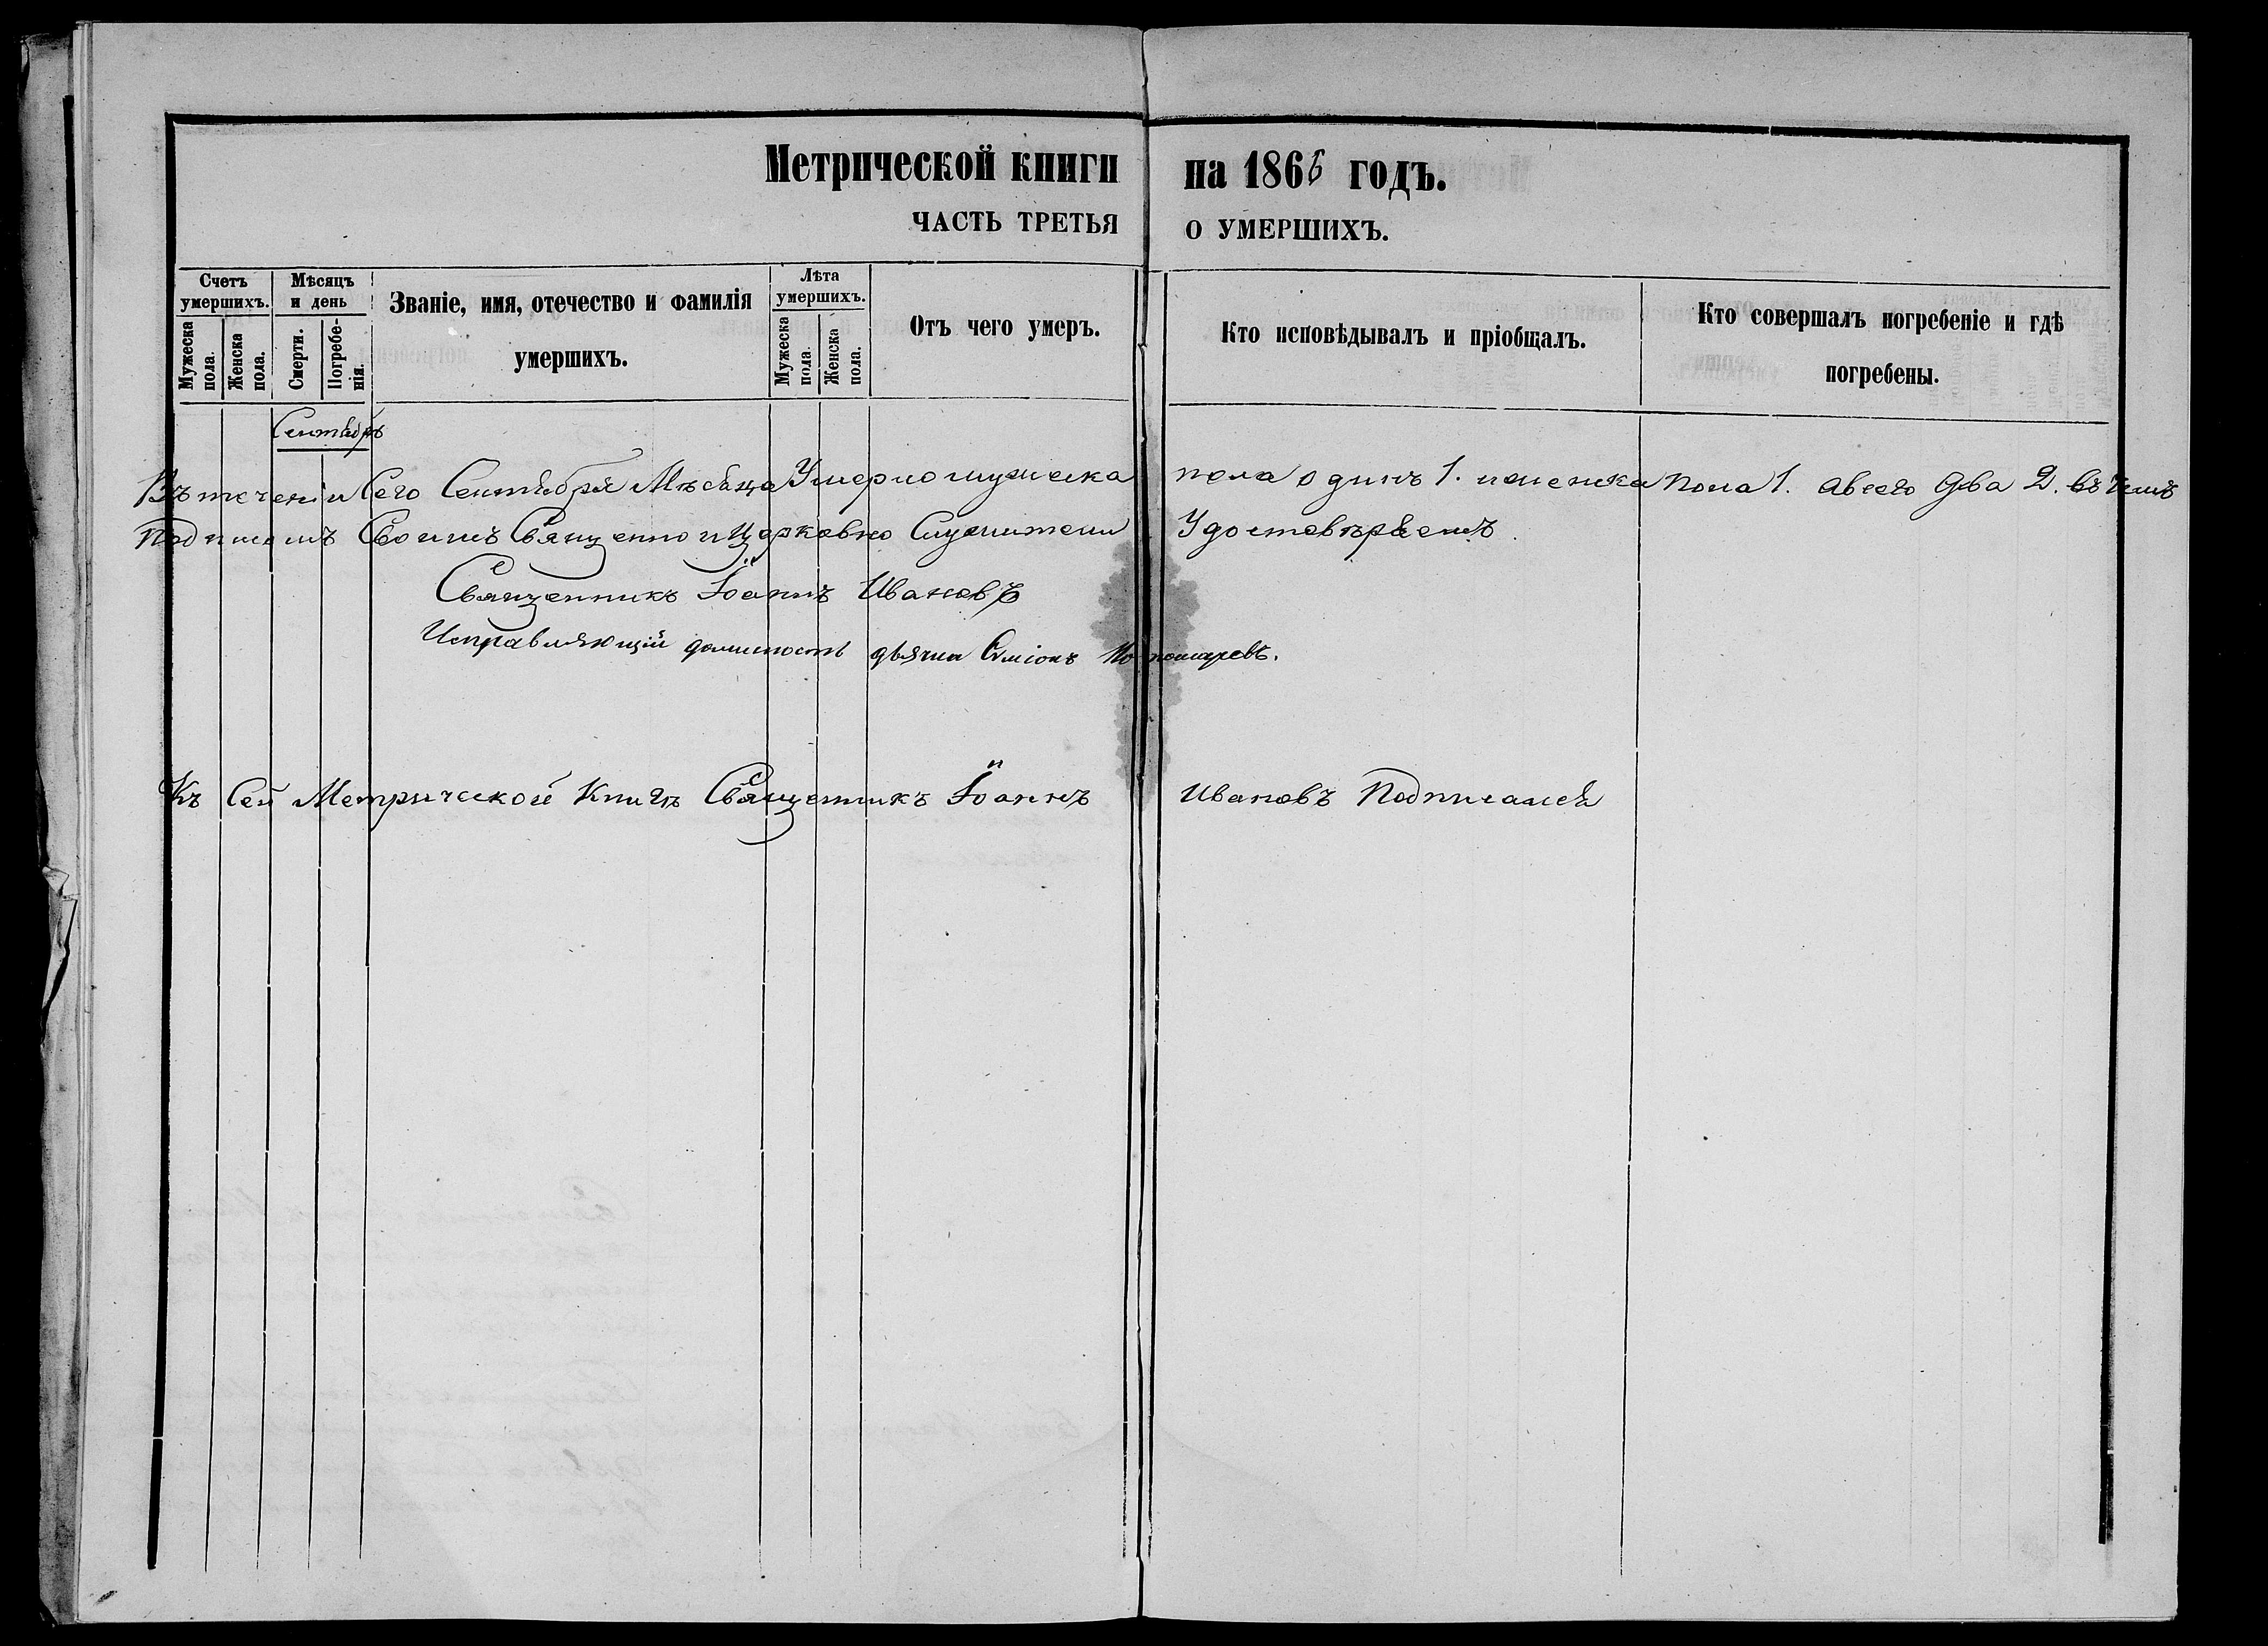 Метрической книги на 1866 годъ.
ЧАСТЬ ТРЕТЬЯ О УМЕРШИХЪ.
Счетъ умершихъ.
Мужеска пола.
Женска пола.
Мѣсяцъ и день
Смерти.
Погребенія.
Званіе, имя, отечество и фамилія умершихъ.
Лѣта умершихъ.
Мужеска пола.
Женска пола.
Отъ чего умеръ.
Кто исповѣдывалъ и пріобщалъ.
Кто совершалъ погребеніе и гдѣ погребены.
Сентябрь
Въ теченіи Сего Сентября Мѣсяца Умерло мужеска пола одинъ 1. и женска пола 1. а всего два 2. въ чемъ
Подписомъ Своимъ Священно и Церковно Служители Удостовѣряемъ.
Священникъ Іоаннъ Ивановъ
Исправляющій должность дьячка Симіонъ Пономаревъ.
Къ Сей Метрической Книгѣ Священникъ Іоаннъ Ивановъ Подписался